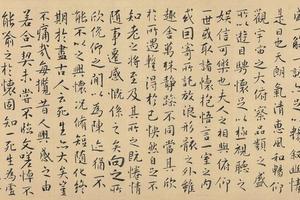 是日也天朗氣清惠風和暢仰
觀宇宙之大俯察品類之盛
所以遊目騁懷足以極視聽之
娛信可樂也夫人之相與俯仰
世或取諸懷抱悟言一室之內
或因寄所託放浪形骸之外雖
趣舍萬殊靜躁不同當其欣
於所遇暫得於己快然自足不
知老之將至及其所之既惓情
隨事遷感慨係之矣向之所
欣俛仰之間以為陳迹猶不
能不以之興懷況脩短隨化終
期於盡古人云死生亦大矣豈
不痛哉每攬昔人興感之由
若合一契未嘗不臨文嗟悼不
能喻之於懷固知一死生為虛